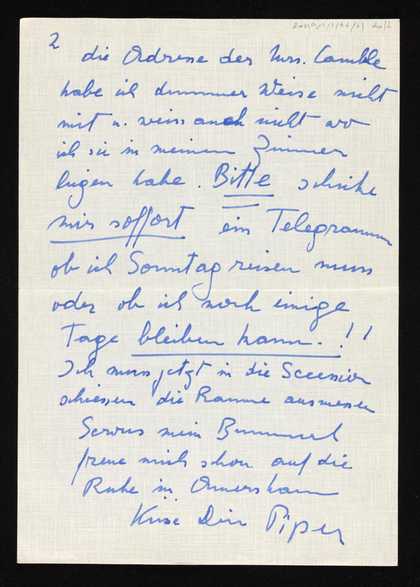 2
die Adresse der Mrs. Camble
habe ich dummer Weise nicht
mit u. weiss auch nicht wo
ich sie in meinem Zimmer
liegen habe. Bitte schicke
mir soffort ein Telegramm
ob ich Sonntag reisen muss
oder ob ich noch einige
Tage bleiben kann.!!
Ich muss jetzt in die Secession
schiessen die Raume ausmessen
Servus mein Bummerl
freue mich schon auf die
Ruhe in
Kuss Dein Piper